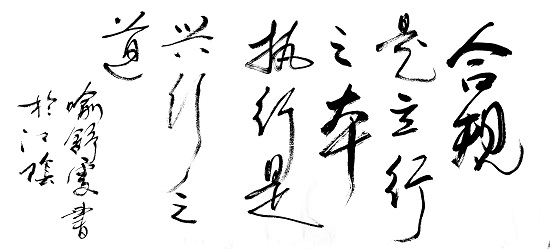 合规
是立行
之本
执行是
兴行之
道
喻舒雯书
于江阴